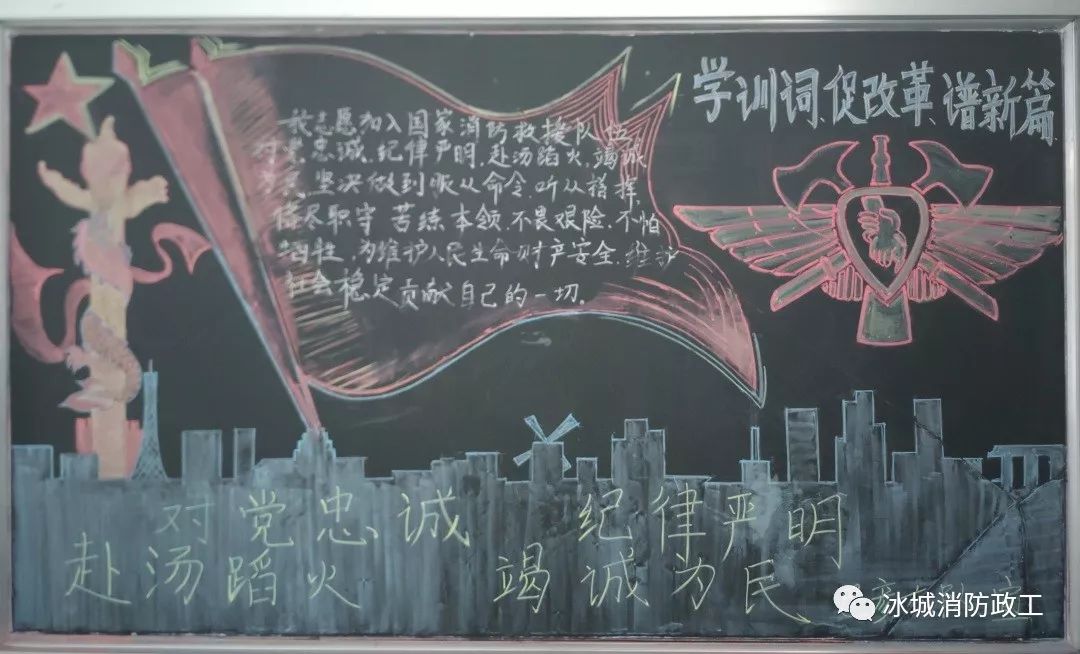 学训词、促改革、谱新篇
我志愿加入国家消防救援队伍
对党忠诚、纪律严明、赴汤蹈火、竭诚
为民、坚决做到服从命令、听从指挥
恪尽职守、苦练本领、不畏艰险、不怕
牺牲、为维护人民生命财产安全、维护
社会稳定贡献自己的一切。
对党忠诚 纪律严明
赴汤蹈火 竭诚为民
冰城消防政工